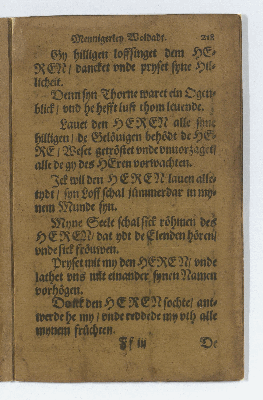 Mennigerley Woldadt. 218
Gy hilligen loffsinget dem HE-
REN/ dancket vnde pryset syne Hil-
licheit.
Denn syn Thorne waret ein Ogen-
blick/ vnd he hefft lust thom leuende.
Lauet den HEREN alle syne
hilligen/ de Gelöuigen behödt de HE-
RE/ Weset getröstet vnde vnuorzaget/
alle de gy des HEren vorwachten.
Ick wil den HEREN lauen alle-
tydt/ syn Loff schal jümmerdar in my-
nem Munde syn.
Myne Seele schal sick röhmen des
HEREN/ dat ydt de Elenden hören/
vnde sick fröuwen.
Pryset mit my den HEREN/ vnde
lathet vns mit einander synen Namen
vorhögen.
Do ick den HEREN sochte/ ant-
werde he my/ vnde reddede my vth alle
mynem früchten.
Ff iij De